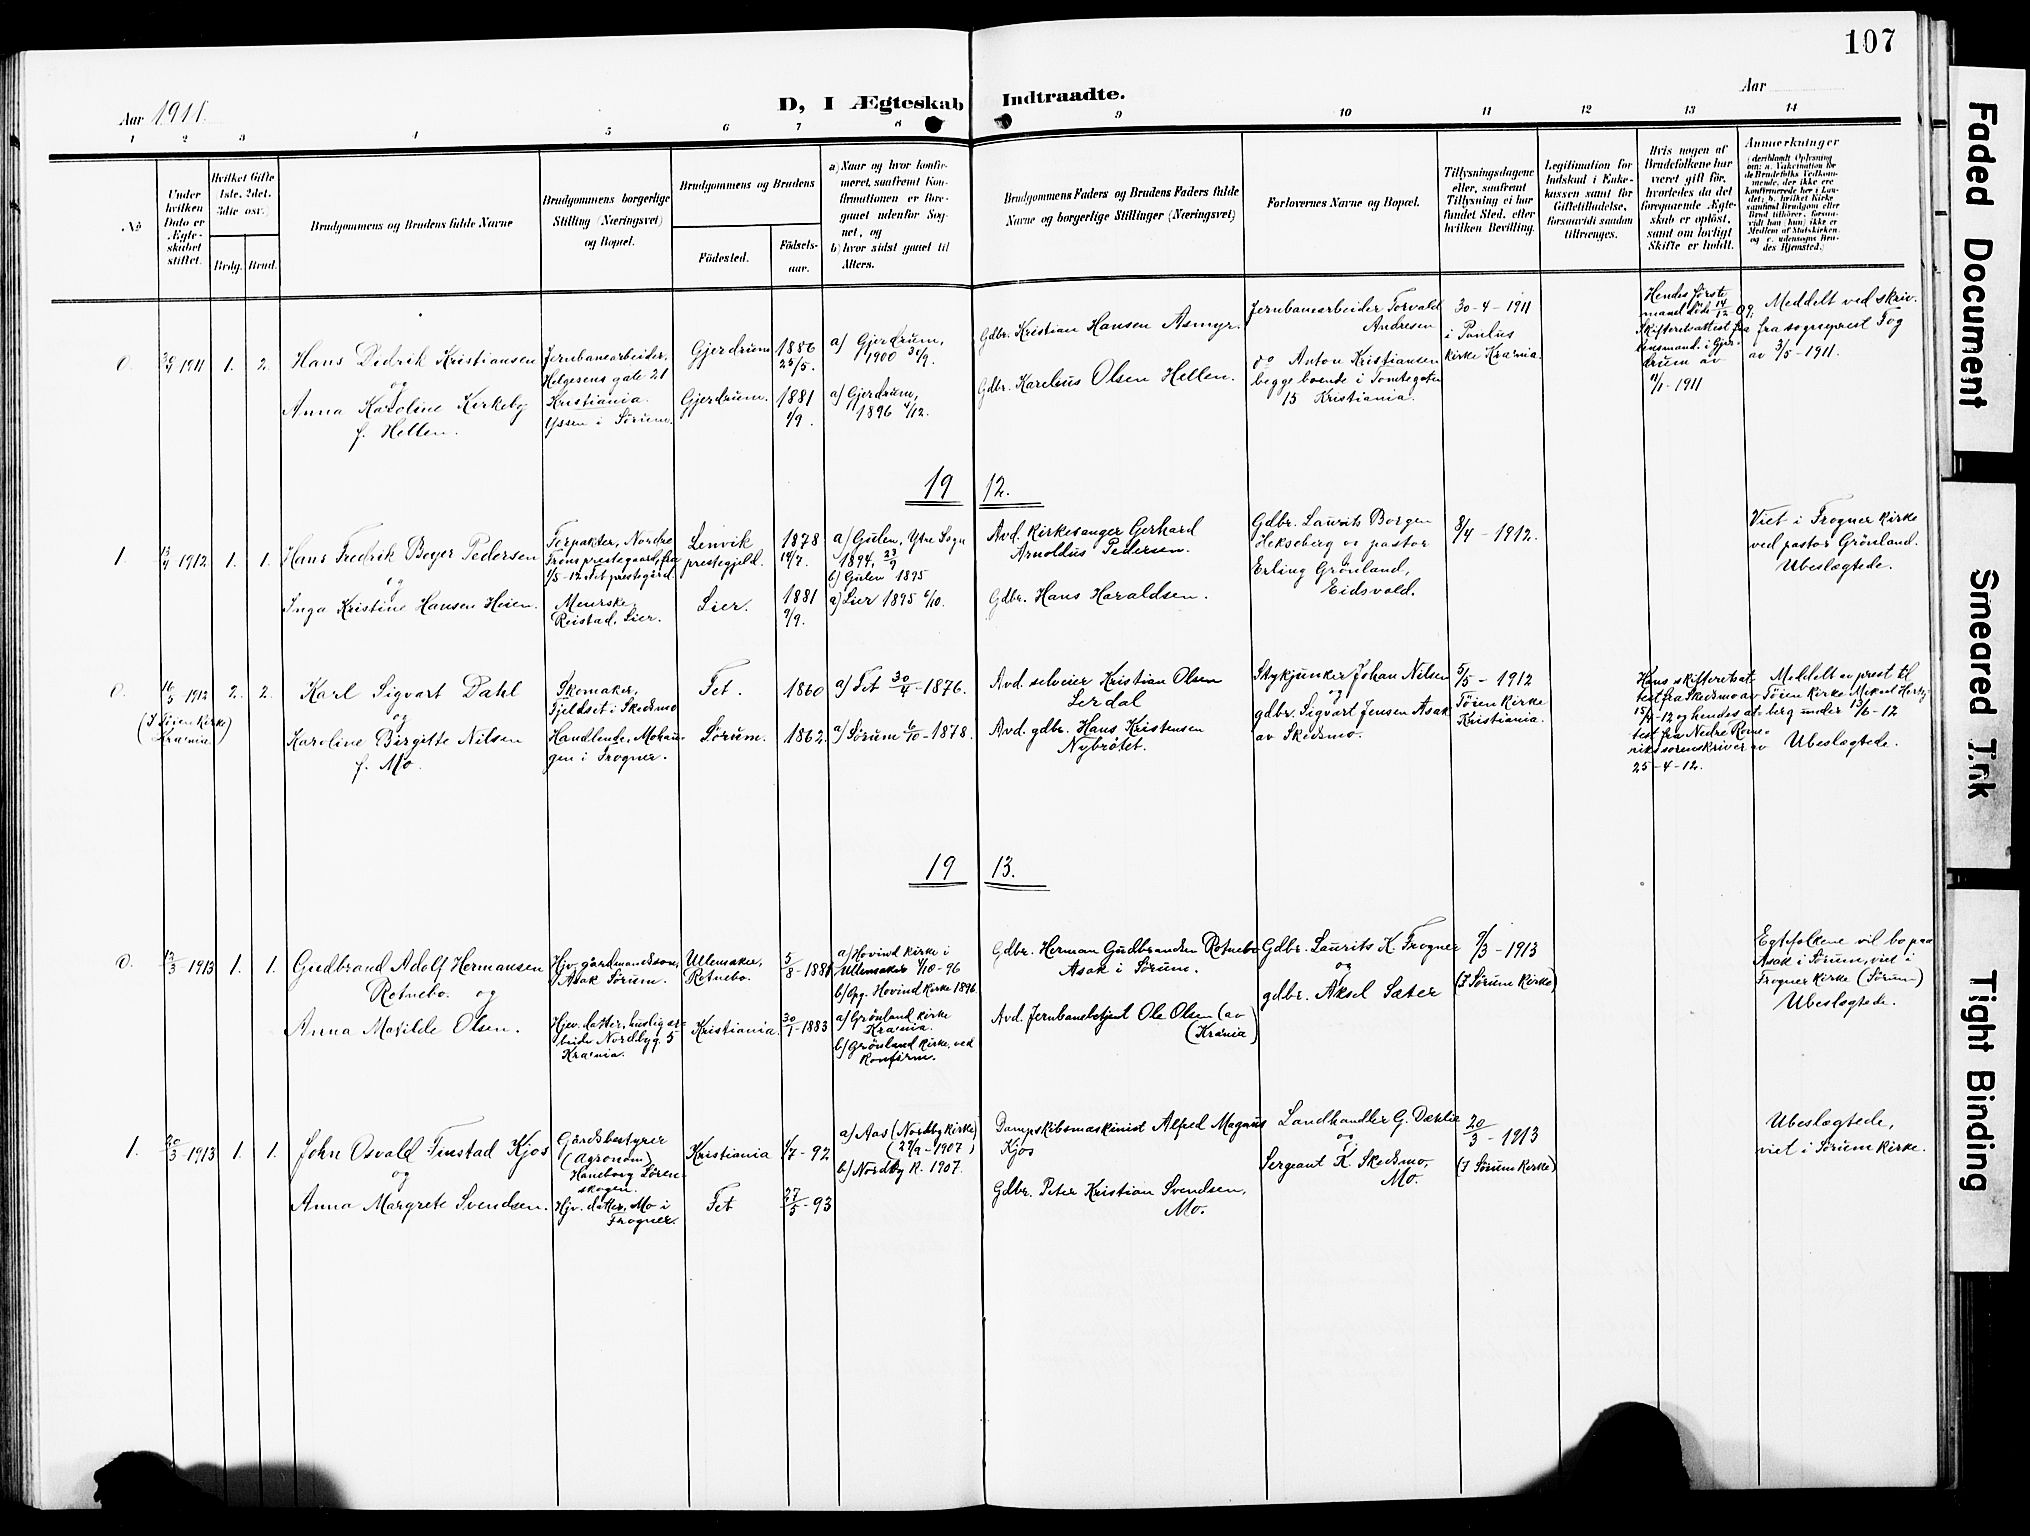 107
Aar 1911.
D, I Ægteskab Indtraadte.
Aar
1 2 3 4 5 6 7 8 9 10 11 12 13 14
No
Under hvilken Dato er Ægteskabet stiftet.
Hvilket Gifte 1ste, 2det, 3die osv.)
Brdg. Brud.
Brudgommens og Brudens fulde Navne
Brudgommens borgerlige Stilling (Næringsvei) og Bopæl.
Brudgommens og Brudens
Födested.
Födselsaar.
a) Naar og hvor konfirmeret, saafremt Konfirmationen er foregaaet udenfor Sognet, og
b) hvor sidst gaaet til Alters.
Brudgommens Faders og Brudens Faders fulde Navne og borgerlige Stillinger (Næringsvei)
Forlovernes Navne og Bopæl.
Tillysningsdagene eller, saafremt Tillysning ei har fundet Sted, efter hvilken Bevilling.
Legitimation for Indskud i Enkekassen samt for Giftetilladelse, forsaavidt saadan tiltrænges.
Hvis nogen af Brudefolkene har været gift før, hvorledes da det foregaaende Ægteskab er opløst, samt om lovligt Skifte er holdt.
Anmerkninger
0. 30/4 1911 1. 2.
Hans Didrik Kristiansen
og
Anna Karoline Kirkeby
f. Hellen.
Jernbanearbeider,
Helgesens gate 21
Kristiania.
Yssen i Sørum.
Gjerdrum
Gjerdrum.
1886
25/5.
1881
1/9.
a) Gjerdrum,
1900 30/9.
a) Gjerdrum,
1896 4/12.
Gdbr. Kristian Hansen Asmyr.
Gdbr. Karelius Olsen Hellen.
Jernbanearbeider Torvald
Andresen
og Anton Kristiansen
begge boende i Tomtegaten
15 Kristiania.
30-4-1911
i Paulus
kirke Kra:nia.
Hendes første
mand døde 14/12-09;
Skifteretsattest fra
lensmand. i Gjer-
drum av
4/1-1911
Meddelt ved skriv.
fra sogneprest Fog
av 3/5-1911.
19 12.
1. 13/4 1912 1. 1.
Hans Fredrik Boyer Pedersen
og
Inga Kristine Hansen Heien.
Forpakter, Nordre
Frøns prestegaard, fra
1/5-12 Fet prestegård.
Meierske,
Reistad, Lier.
Lenvik
prestegjeld.
Lier.
1878
14/7.
1881
9/9.
a) Gulen, Ytre Sogn
1894, 23/9
b) Gulen 1895
a) Lier 1895 6/10.
Avd. Kirkesanger Gerhard
Arnoldus Pedersen.
Gdbr. Hans Haraldsen.
Gdbr. Laurits Borgen
Hekseberg og pastor
Erling Grönland,
Eidsvold.
8/4-1912.
Viet i Frogner kirke
ved pastor Grönland.
Ubeslægtede.
0. 16/5 1912 2. 2.
(I Tøien Kirke
Kra:nia)
Karl Sigvart Dahl
og
Karoline Birgitte Nilsen
f. Mo.
Skomaker,
Fjeldset i Skedsmo
Handlende, Mohau-
gen i Frogner.
Fet.
Sørum.
1860
1862.
a) Fet 30/4-1876.
a) Sørum 6/10-1878.
Avd. selveier Kristian Olsen
Lerdal
Avd. gdbr. Hans Kristensen
Nybråtet.
Stykjunker Johan Nilsen
og
gdbr. Sigvart Jensen Asak
av Skedsmo.
5/5-1912
Tøien Kirke
Kristiania.
Hans skifteretsat-
test fra Skedsmo av
15/4-12 og hendes at-
test fra Nedre Rome-
riks sorenskriver av
25-4-12.
Meddelt av prest til
Tøien Kirke Mikael Hertz-
berg under 13/6-12
Ubeslægtede.
19 13.
0. 12/3 1913 1. 1.
Gudbrand Adolf Hermansen
Rotnebo. og
Anna Matilde Olsen.
Hjv. gårdmandssön,
Asak Sørum.
Hjev. datter, huslig ar-
beide Nordbyg. 5
Kra:nia.
Ullensaker,
Rotnebo.
Kristiania.
5/8-1881
30/1-1883
a) Hovind kirke i
Ullensaker 4/10-96
b) Opg. Hovind kirke 1896
a) Grönland kirke
Kra:nia.
b) Grönland kirke, ved
Konfirm.
Gdbr. Herman Gudbrandsen Rotnebo
Asak i Sørum.
Avd. Jernbanebetjent Ole Olsen (av
Kra:nia)
Gdbr. Laurits K. Frogner
og
gdbr. Aksel Sæter
9/3-1913
(I Sørum kirke)
Egtefolkene vil bo paa
Asak i Sørum, viet i
Frogner kirke (Sørum)
Ubeslægtede.
1. 20/3-1913 1. 1.
John Osvald Finstad Kjos
og
Anna Margrete Svendsen.
Gårdsbestyrer
(Agronom)
Haneborg Lören-
skogen.
Hjv. datter, Mo i
Frogner.
Kristiania
Fet
4/7-92
27/5-93
a) Aas (Nordby kirke)
(29/9-1907)
b) Nordby K. 1907.
Dampskibsmaskinist Alfred Magnus
Kjos
Gdbr. Peter Kristian Svendsen,
Mo.
Landhandler G. Dæhlie
og
Sergeant K. Skedsmo,
Mo.
20/3-1913
(I Sørum kirke)
Ubeslægtede,
viet i Sørum kirke.
Faded Document
Smeared Ink
Tight Binding